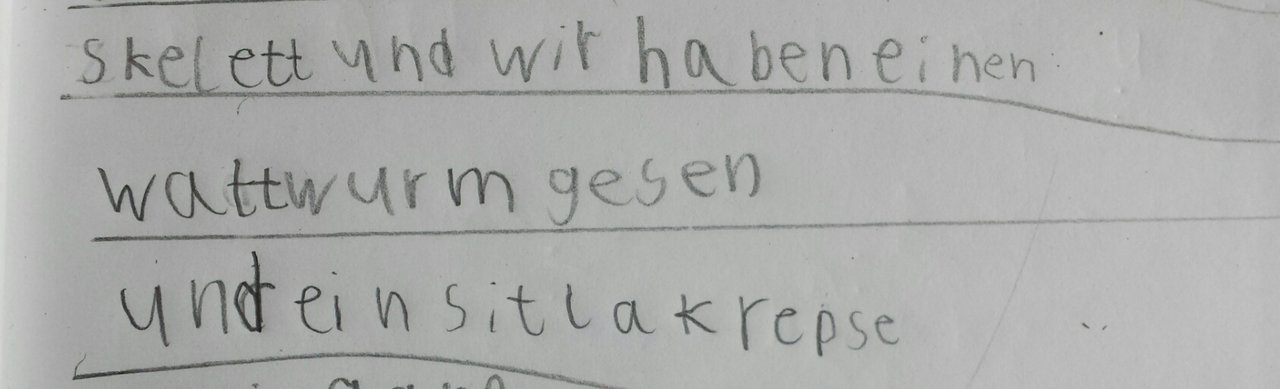 skelett und wir haben einen
wattwurm gesen
und einsitlakrepse